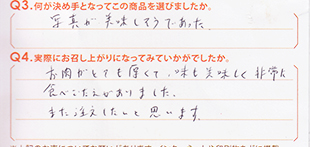 Q3.何が決め手となってこの商品を選びましたか。
写真が美味しそうであった。
Q4.実際にお召し上がりになってみていかがでしたか。
お肉がとても厚くて、味も美味しく非常に
食べごたえがありました。
また注文したいと思います。